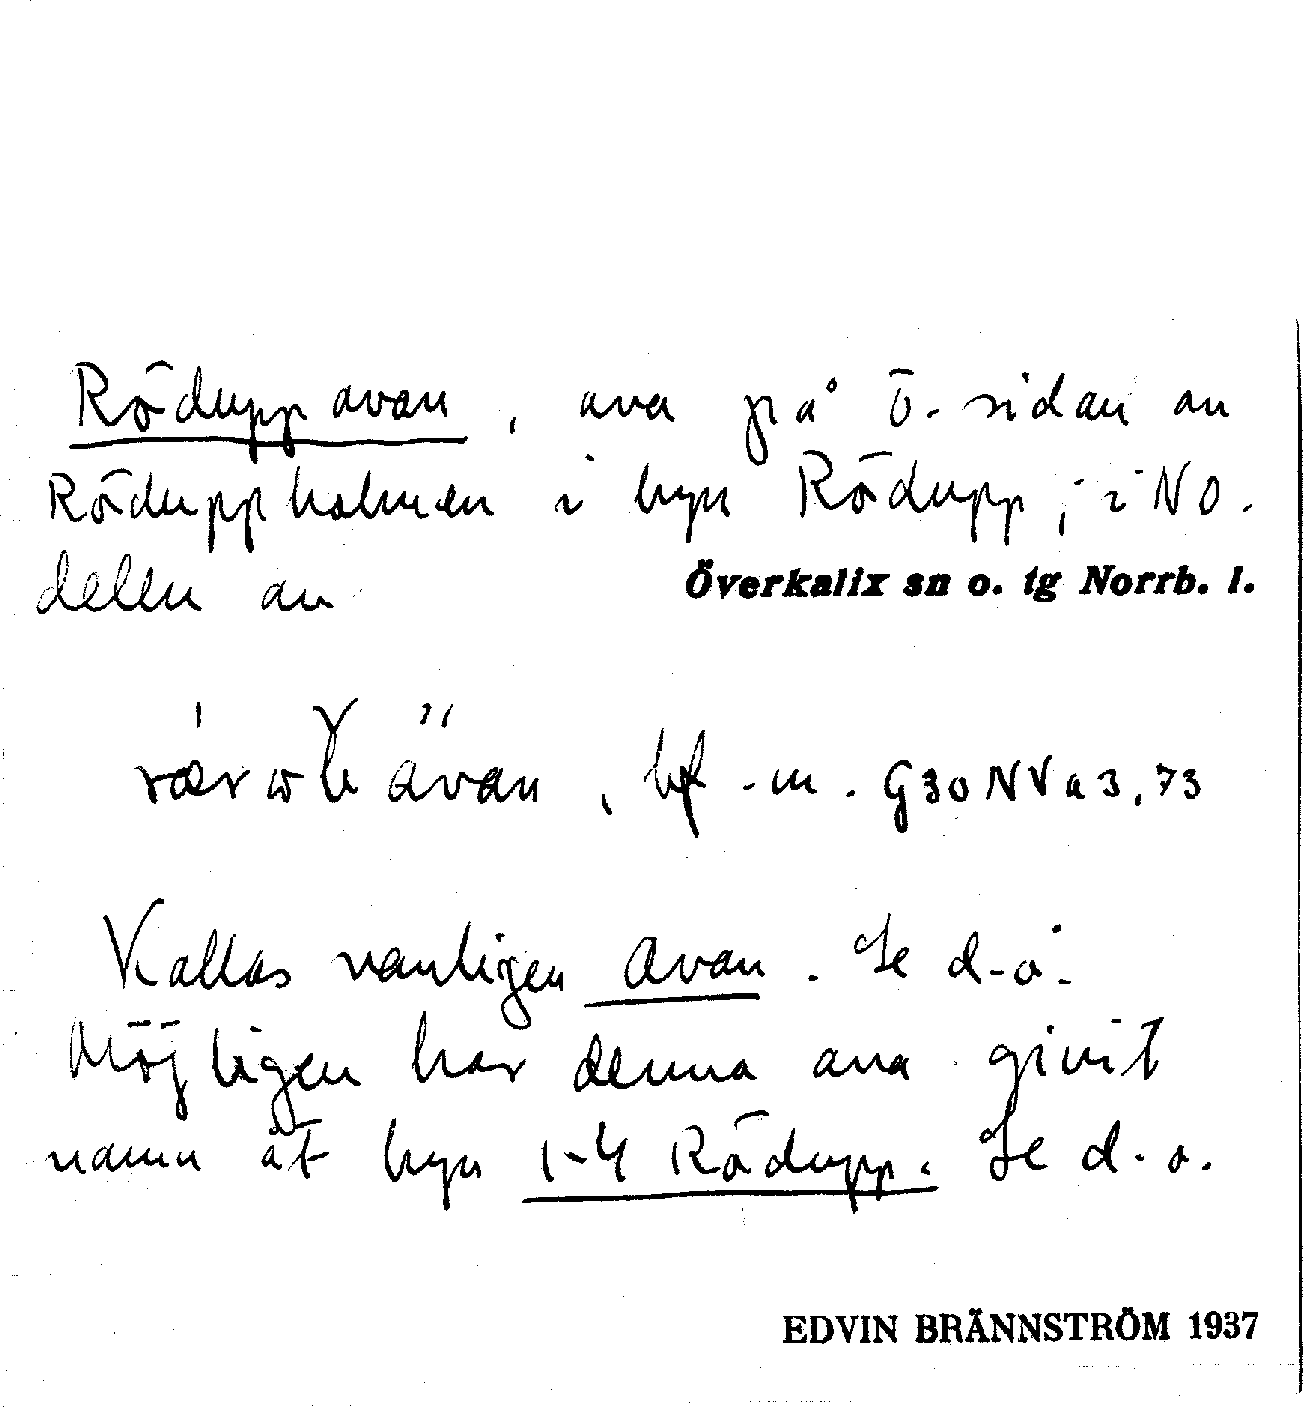 Röduppavan, ava på ö.sidan av
Röduppholmen i byn Rödupp, i NO.
delen av Överkalix sn o. tg Norrb. l.
bf -m. G30NVa3,73
Kallas vanligen Avan. Se d.o.
Möjligen har denna ava givit
namn åt byn 1-4 Rödupp. Se d.o.
EDVIN BRÄNNSTRÖM 1937